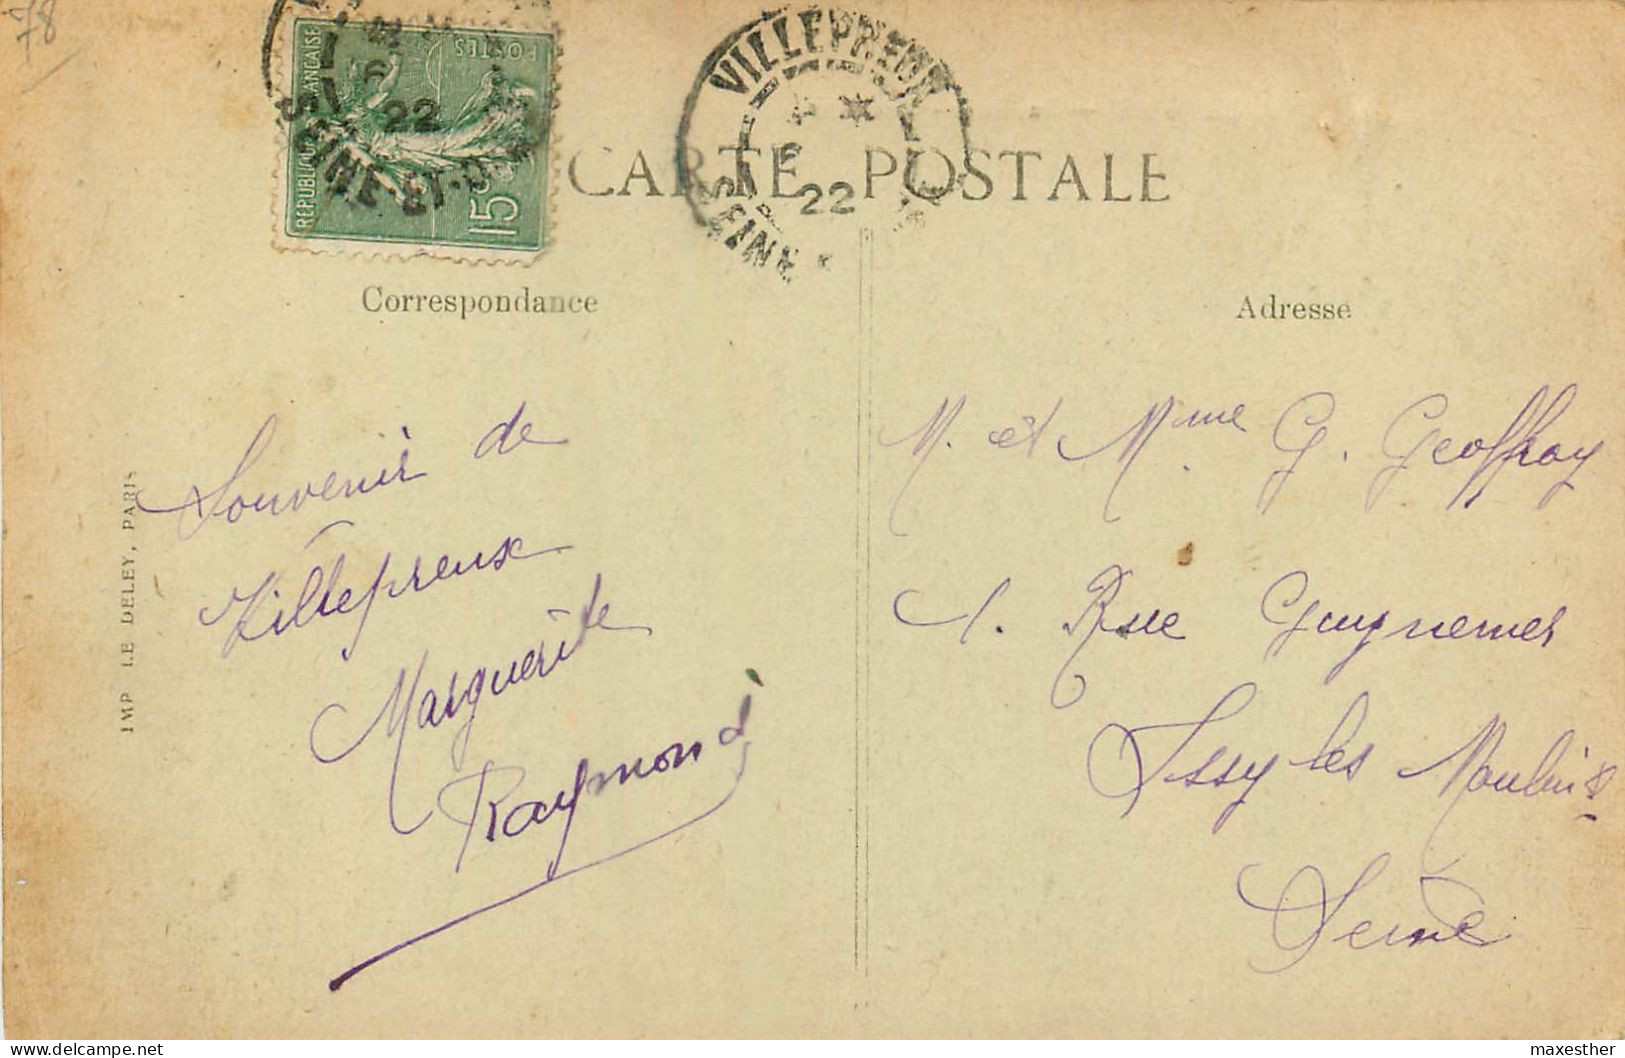 78
RÉPUBLIQUE FRANÇAISE
POSTES
15c
22
SEINE-ET-O
VILLEPREUX
6
22
SEINE
CARTE POSTALE
Correspondance
Adresse
Souvenir de
Villepreux
Marguerite
Raymond
IMP LE DELEY, PARIS
M. et Mme G. Geoffroy
1. Rue Guynemer
Issy les Moulins
Seine
delcampe.net
maxesther